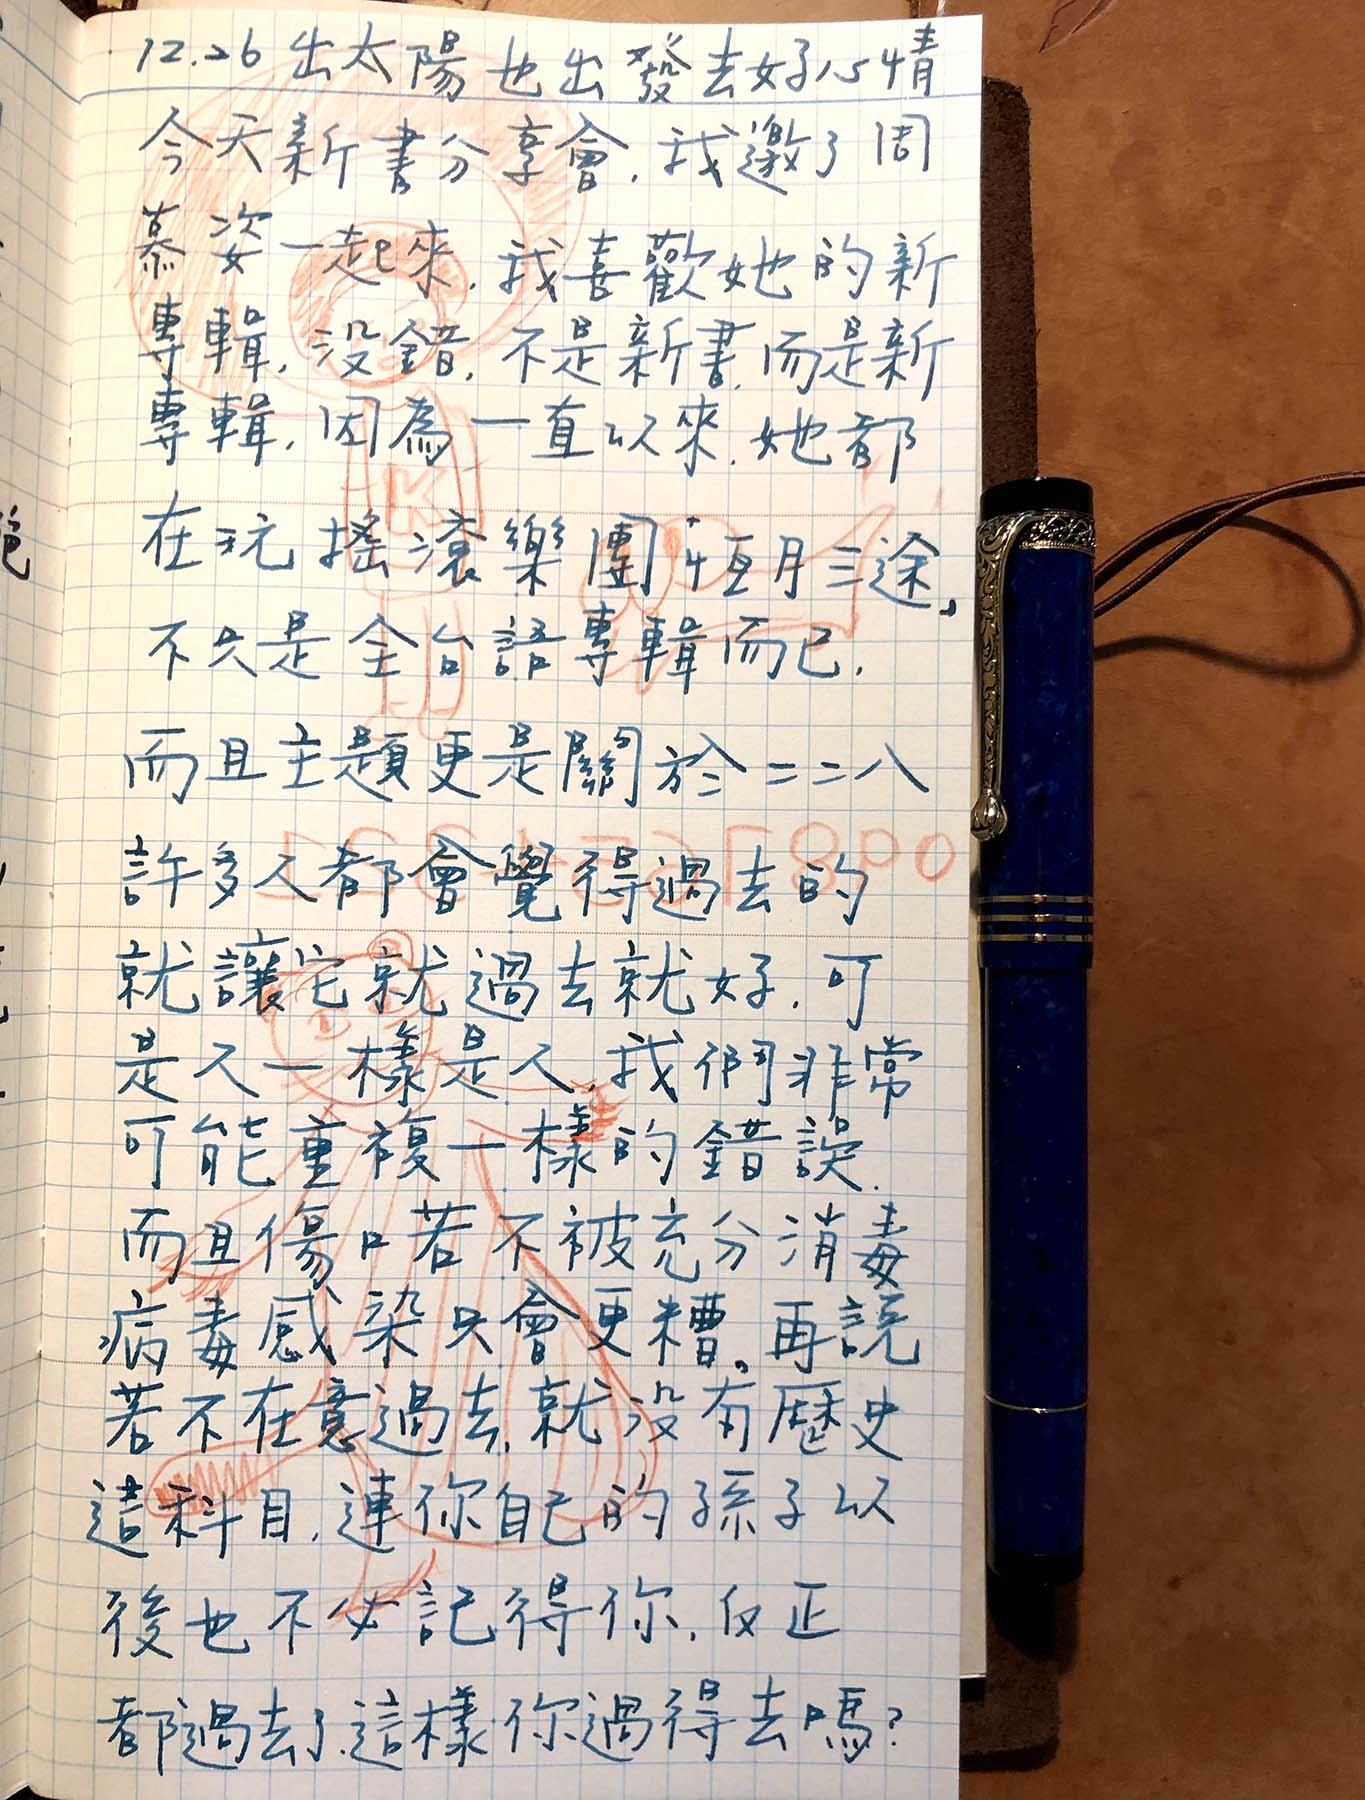 12.26 出太陽也出發去好心情
今天新書分享會,我邀了周
慕姿一起來,我喜歡她的新
專輯,沒錯,不是新書,而是新
專輯,因為一直以來,她都
在玩搖滾樂團"恆月三途"
不只是全台語專輯而已,
而且主題更是關於二二八
許多人都會覺得過去的
就讓它就過去就好,可
是人一樣是人,我們非常
可能重複一樣的錯誤,
而且傷口若不被充分消毒
病毒感染只會更糟。再說
若不在意過去,就沒有歷史
這科目,連你自己的孫子以
後也不必記得你,反正
都過去了,這樣你過得去嗎?
K